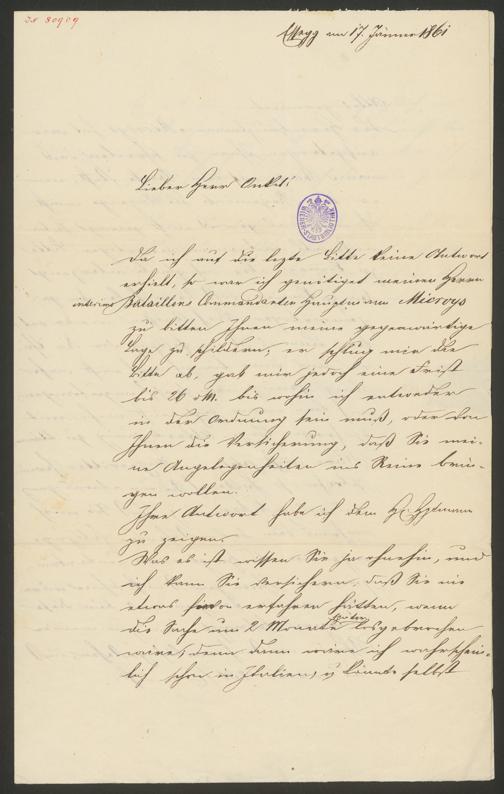 IN 80909
Essegg am 17. Jänner 1861
Lieber Herr Onkel!
WIENER STADTBIBLIOTHEK
Da ich auf die lezte Bitte keine Antwort
erhielt, so war ich genötiget meinen Herrn
interims Bataillons Commandanten Hauptmann
zu bitten Ihnen meine gegenwärtige
Lage zu schildern; er schlug mir die
Bitte ab, gab mir jedoch eine Frist
bis 26 d M. bis wohin ich entweder
in der Ordnung sein muß, oder von
Ihnen die Versicherung, daß Sie mei-
ne Angelegenheiten ins Reine brin-
gen wollen.
Ihre Antwort habe ich dem H: Hptmann
zu zeigen.
Was es ist wissen Sie ja ohnehin, und
ich kann Sie versichern, daß Sie nie
etwas hievon erfahren hätten, wenn
die Sache um 2 Monate später losgebrochen
wäre, denn dann wäre ich wahrschein-
lich schon in Italien, u könnte selbst